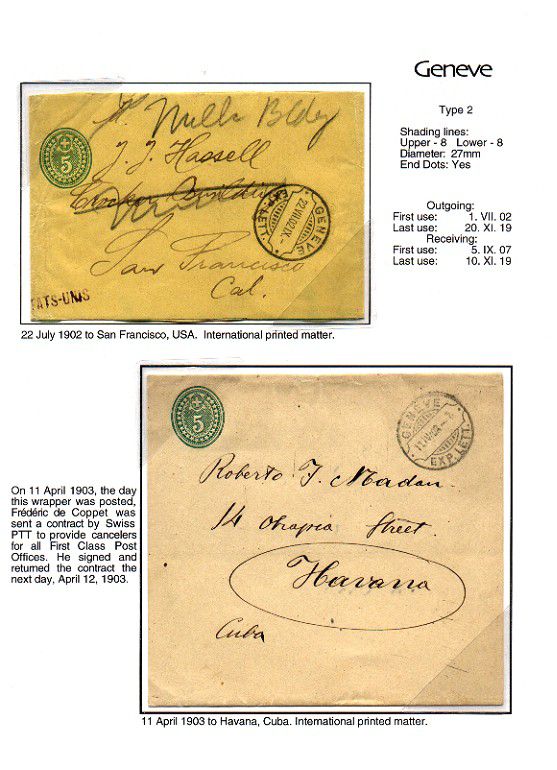 Geneve
Type 2
Shading lines:
Upper - 8 Lower - 8
Diameter: 27mm
End Dots: Yes
Outgoing:
First use: 1. VII. 02
Last use: 20. XI. 19
Receiving:
First use: 5. IX. 07
Last use: 10. XI. 19
Mills Bldg
5
J. J. Hassell
Crocker Building
GENEVE
22.VII.02.IX-
EXP. LETT.
San Francisco
Cal.
TATS-UNIS
22 July 1902 to San Francisco, USA. International printed matter.
5
GENEVE
EXP. LETT.
Roberto F. Madan
14 Obrapia Street
Havana
Cuba
On 11 April 1903, the day
this wrapper was posted,
Frédéric de Coppet was
sent a contract by Swiss
PTT to provide cancelers
for all First Class Post
Offices. He signed and
returned the contract the
next day, April 12, 1903.
11 April 1903 to Havana, Cuba. International printed matter.